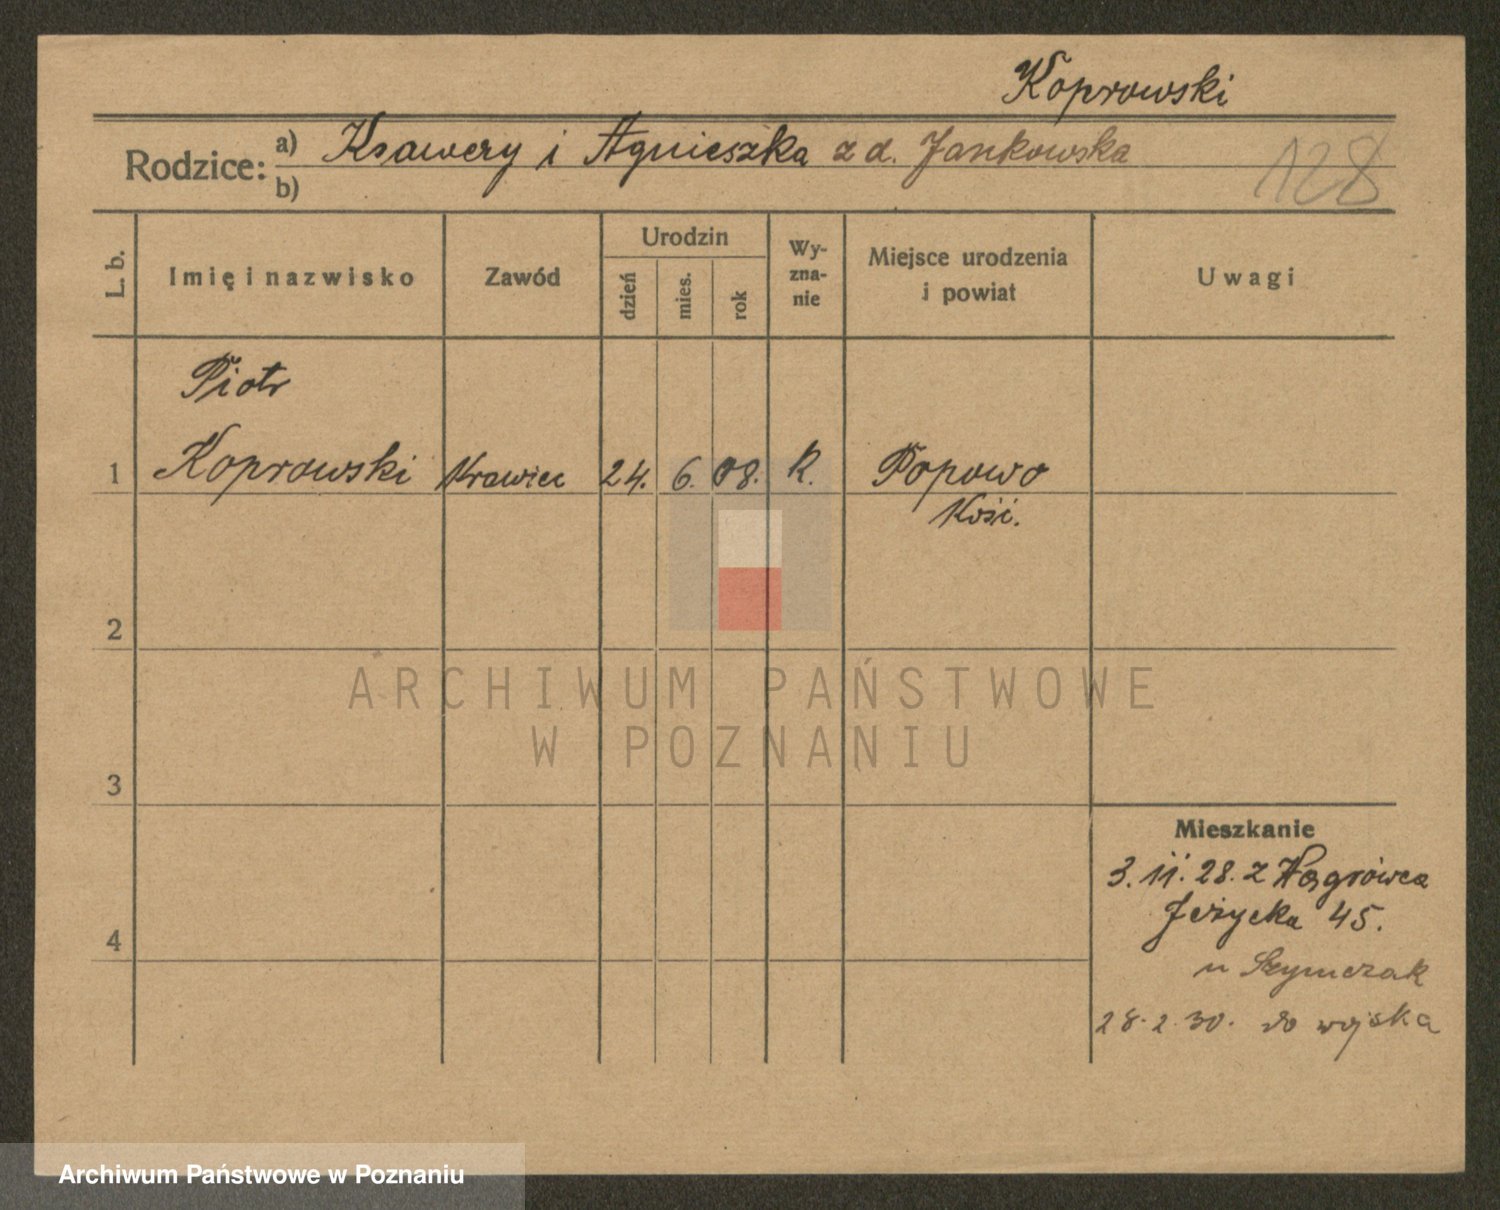 Koprowski
Rodzice: a) Ksawery i Agnieszka z d. Jankowska
b)
128
L. b.
Imię i nazwisko
Zawód
Urodzin
dzień
mies.
rok
Wy-
zna-
nie
Miejsce urodzenia
i powiat
Uwagi
Piotr
1 Koprowski Krawiec 24. 6. 08. R. Popowo
Kość.
2
3
4
ARCHIWUM PAŃSTWOWE
W POZNANIU
Mieszkanie
3. 11. 28. z Wągrówca
Jeżycka 45.
u Szymczak
28. 2. 30. do wojska
Archiwum Państwowe w Poznaniu